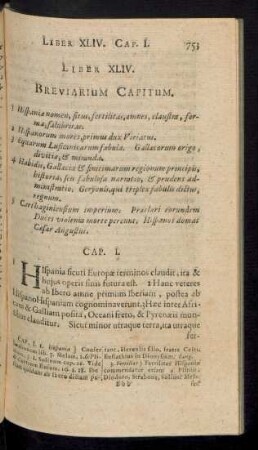 LIBER XLIV. CAP. I. 753
LIBER XLIV.
BREVIARIUM CAPITUM.
1 Hispaniæ nomen, situs, fertilitas, amnes, claustra, for-
ma, salubritas.
2 Hispanorum mores, primus dux Viriatus.
3 Equarum Lusitanicarum fabula. Gallæcorum origo,
divitiæ, & 
4 Habidis, Gallæciæ & finitimarum regionum principis,
historia, seu fabulosa narratio, & prudens ad-
ministratio. Geryonis, qui triplex fabulis dictus,
regnum.
5 Carthaginiensium imperium. Prætori eorundem
Duces violenta morte pereunt. Hispanos domat
Cæsar Augustus.
CAP. I.
1 HIspania sicuti Europæ terminos claudit, ita &
hujus operis finis futura est. 2 Hanc veteres
ab Ibero amne primum Iberiam, postea ab
Hispano Hispaniam cognominaverunt. 3 Hæc inter Afri-
cam & Galliam posita, Oceani freto, & Pyrenæis mon-
tibus clauditur. Sicut minor utraque terra, ita utraque
fer-
CAP. I. 1 Hispania
Bbb